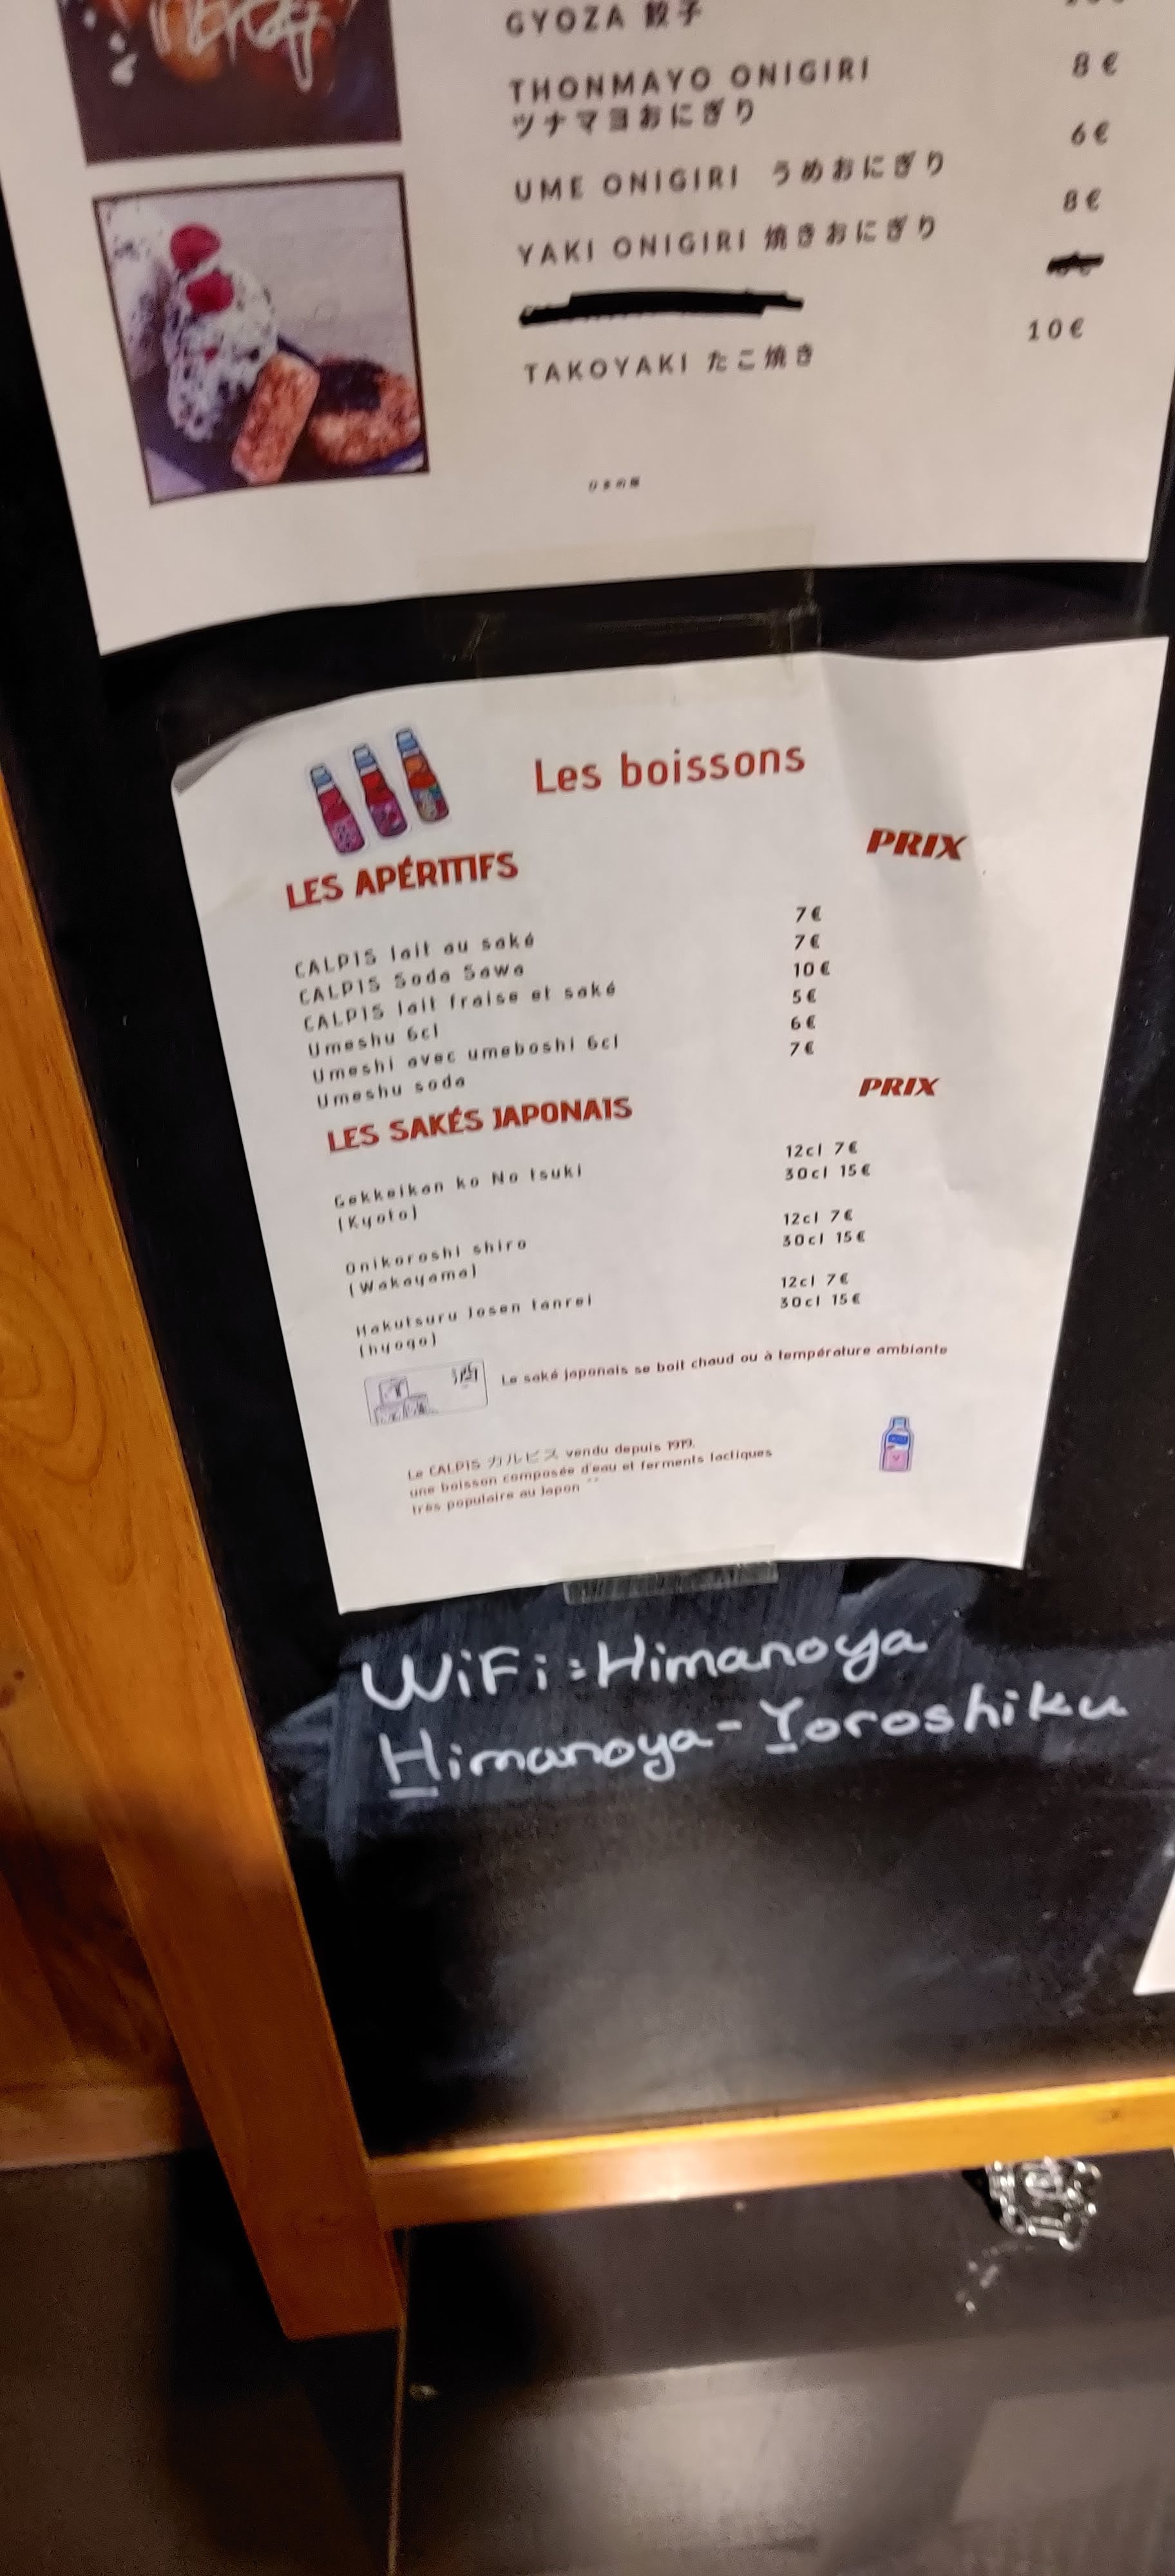 GYOZA 餃子
THONMAYO ONIGIRI 8 €
ツナマヨおにぎり
UME ONIGIRI うめおにぎり 6€
YAKI ONIGIRI 焼きおにぎり 8€
TAKOYAKI たこ焼き 10€
Les boissons
LES APÉRITIFS PRIX
CALPIS lait au saké 7€
CALPIS Soda Sawa 7€
CALPIS lait fraise et saké 10€
Umeshu 6cl 5€
Umeshi avec umeboshi 6cl 6€
Umeshu soda 7€
LES SAKÉS JAPONAIS PRIX
Gekkeikan ko No tsuki 12cl 7€
(Kyoto) 30cl 15€
Onikoroshi shiro 12cl 7€
(Wakayama) 30cl 15€
Hakutsuru Josen tanrei 12cl 7€
(hyogo) 30cl 15€
Le saké japonais se boit chaud ou à température ambiante
Le CALPIS カルピス vendu depuis 1919.
une boisson composée d'eau et ferments lactiques
très populaire au Japon ^^
WiFi : Himanoya
Himanoya-Yoroshiku